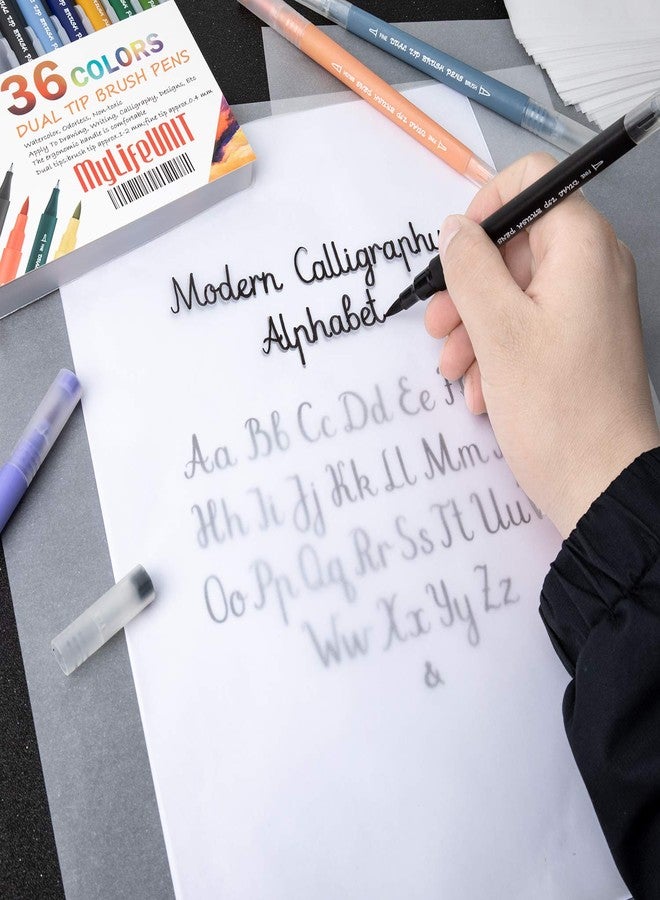 36 COLORS
DUAL TIP BRUSH PENS
Watercolor, Odorless, Non-toxic
Apply To Drawing, Writing, Calligraphy, Designs, Etc
The ergonomic handle is comfortable
Dual tips:brush tip approx.1-2 mm;fine tip approx.0.4 mm
MyLifeUNIT
THE DUAL TIP BRUSH PENS
THE DUAL TIP BRUSH PENS
THE DUAL TIP BRUSH PENS
Modern Calligraphy
Alphabet
Aa Bb Cc Dd Ee
Hh Ii Jj Kk Ll Mm
Oo Pp Qq Rr Ss Tt Uu
Ww Xx Yy Zz
&